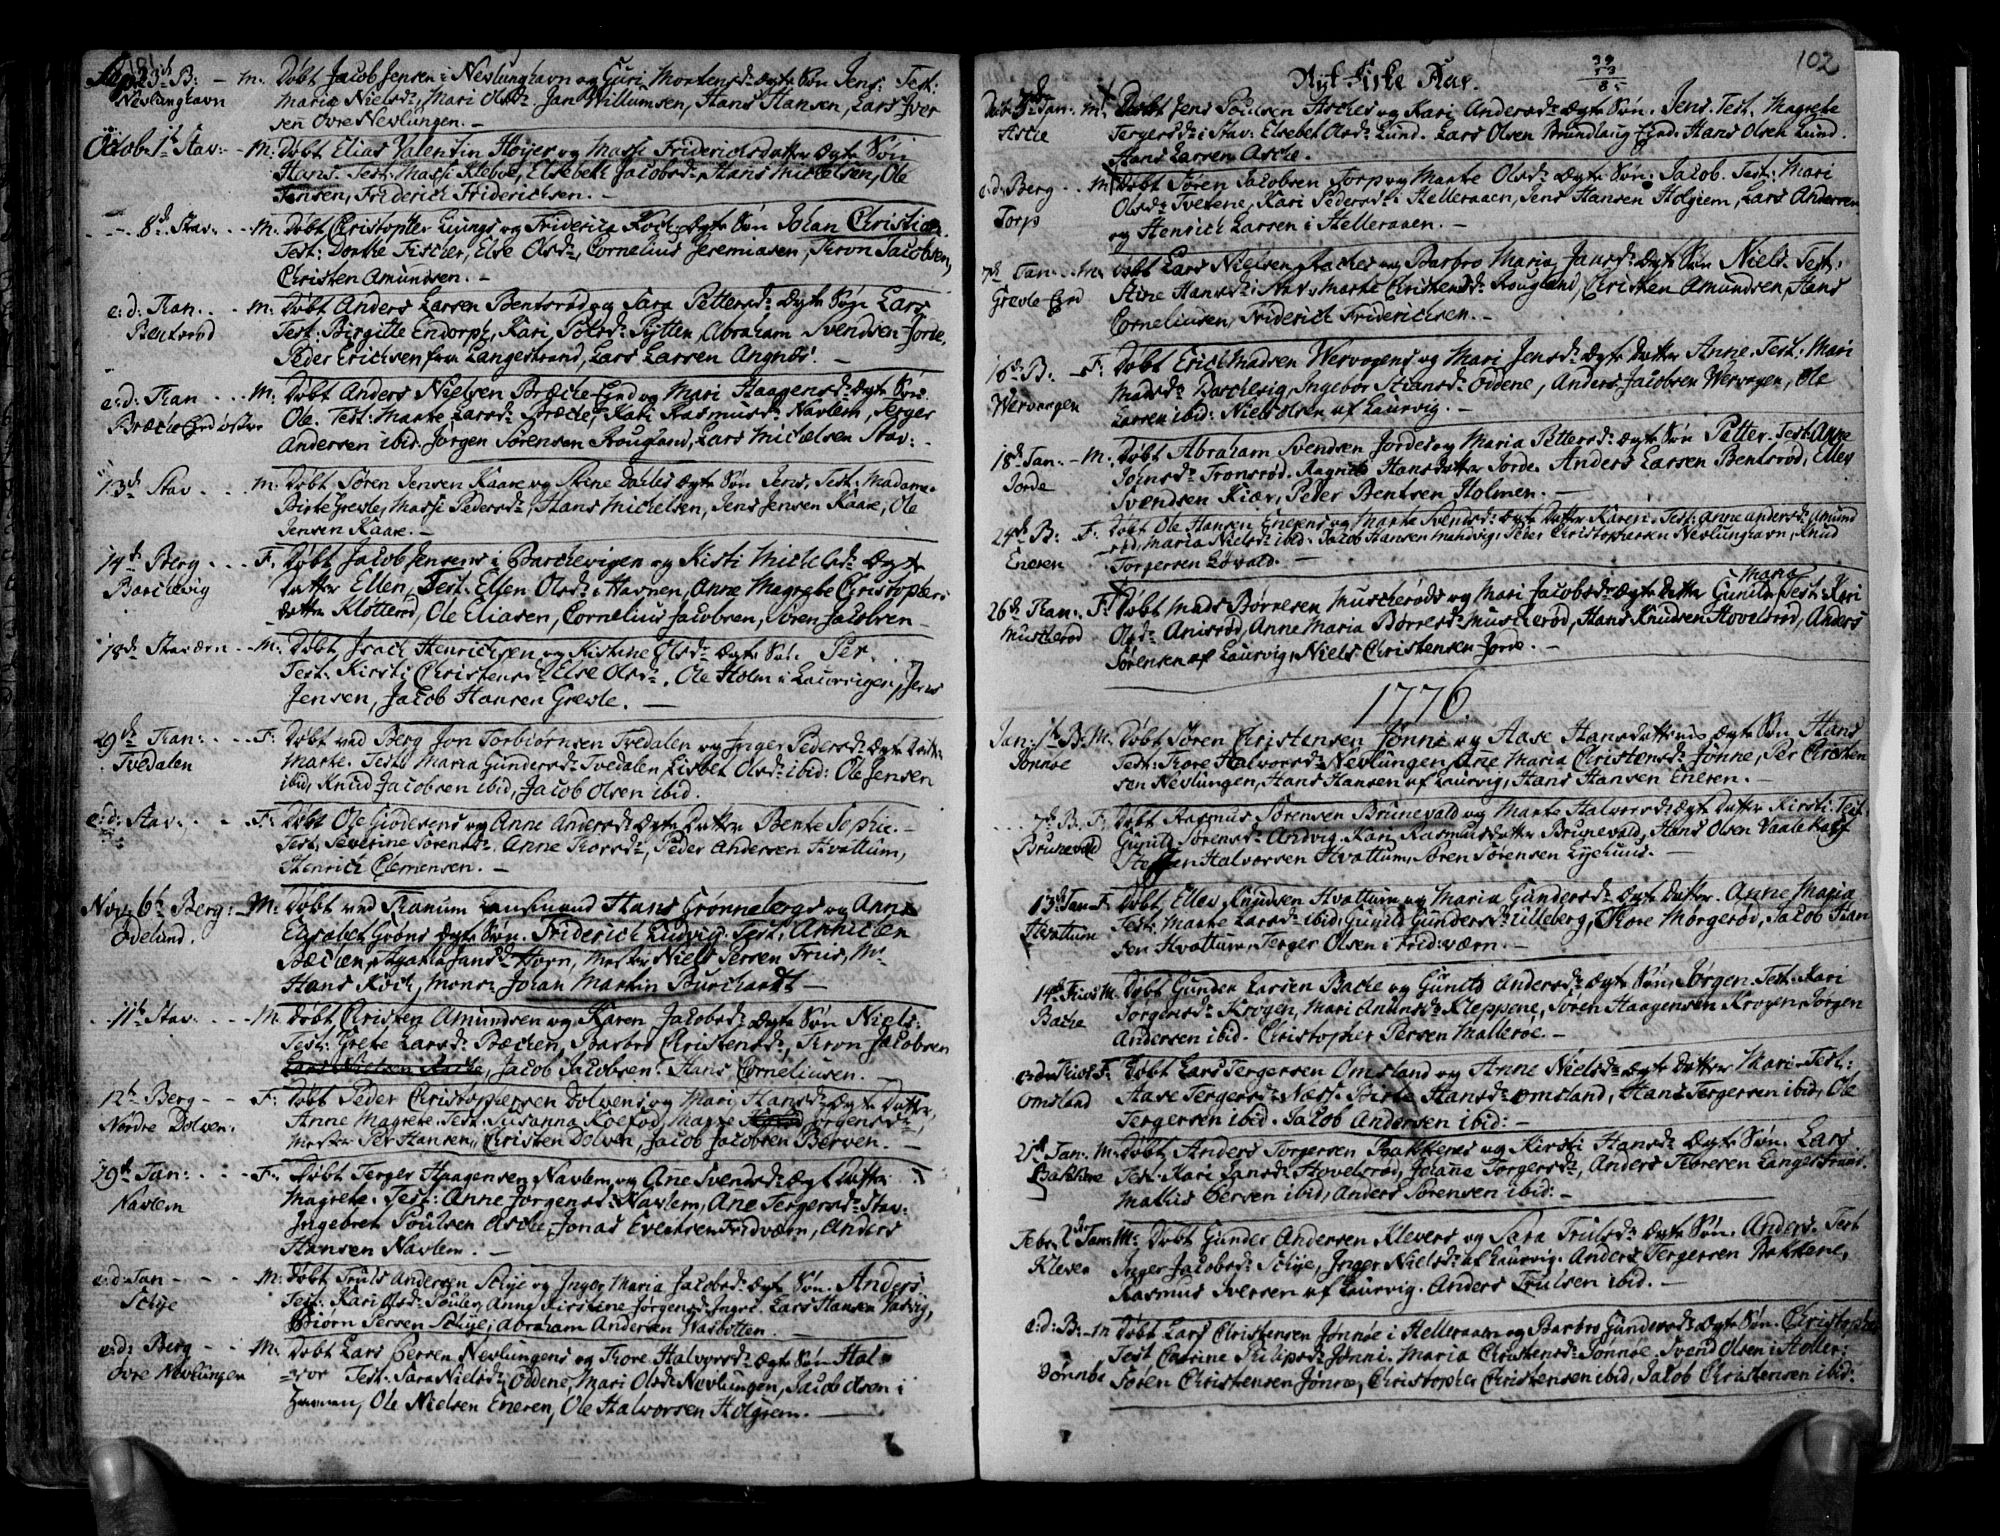 101
Sept 23d B: - M: Døbt Jacob Jensen i Nevlunghavn og Guri Mortensd: ægte Søn Jens. Test:
Nevlunghavn Maria Nielsd:, Mari Olsd: Jan Willumsen, Hans Hansen, Lars Iver
sen Øvre Nevlungen. -
Octob: 1t Stav: - M: Døbt Elias Valentin Høyer og Massi Friderichsdatter ægte Søn
Hans. Test: Massi Klebve, Elsebeth Jacobsd:, Hans Michelsen, Ole
Jensen, Friderich Friderichsen. -
8d Stav: - M: Døbt Christopher Liungs og Friderica Koch ægte Søn Johan Christian
Test: Dorthe Fischer, Else Olsd:, Cornelius Jeremiasen, Tron Jacobsen,
Christen Amundsen. -
e: d: Tan: - M: Døbt Anders Larsen Bentsrød og Sara Pettersd: ægte Søn Lars
Bentsrød Test: Birgitte Endorph, Kari Polsd: Pytten, Abraham Svendsen Jorde,
Peder Erichsen fra Langestrand, Lars Larsen Angnes. -
e: d: Tan - M: Døbt Anders Nielsen Bræche Ejed og Mari Haagensd: ægte Søn
Bræche Ejed østre Ole. Test: Marte Larsd: Bræche, Kari Rasmusd: Navlem, Terger
Andersen ibid. Jørgen Sørensen Rougland, Lars Michelsen Stav: -
13d Stav - M: Døbt Søren Jensen Kaare og Stine Dailes ægte Søn Jens, Test: Madame
Birte Grevle, Massi Pedersd:, Hans Michelsen, Jens Jensen Kaare, Ole
Jensen Kaare. -
14d Berg - F: Døbt Jacob Jensens i Barchevigen og Kisti Michelsd: ægte
Barchevig Datter Ellen, Test: Ellen Olsd: i Havnen, Anne Magrete Christophers
datter Kløtterød, Ole Eliasen, Cornelius Jacobsen, Søren Jacobsen -
18d Staværn - M: Døbt Isach Henrichsen og Kistine Olsd: ægte Søn Per.
Test: Kirsti Christensd: Else Olsd:, Ole Holm i Laurvigen, Jens
Jensen, Jacob Hansen Grevle. -
29d Tan: - F: Døbt ved Berg Jon Torbiørnsen Tvedalen og Inger Pedersd: ægte Datter
Tvedalen Marte. Test: Maria Gundersd: Tvedalen Lisbet Olsd: ibid: Ole Jensen
ibid, Knud Jacobsen ibid, Jacob Olsen ibid.
e: d: Stav: - F: Døbt Ole Giødesens og Anne Andersd: ægte Datter Bente Sophie. -
Test. Severine Sørensd: Anne Torsd:, Peder Andersen Hvattum,
Henrich Clemensen. -
Nov: 6t Berg: - M: Døbt ved Tranum Lensmand Hans Grønnebergs og Anne
Ødelund. Elisabet Grøns ægte Søn. Friderich Ludvig. Test: Anniclen
Bæchen, Agathe Jansd: Horn, Mester Niels Persen Friis, Mr
Hans Koch, Monsr Johan Martin Burchardt -
11t Stav - M: Døbt Christen Amundsen og Karen Jacobsd: ægte Søn Niels.
Test: Grete Larsd: Bæchen, Barbro Christensd:, Tron Jacobsen
Lars Nielsen Aache, Jacob Jacobsen. Hans Corneliusen.
12t Berg - F: Døbt Peder Christophersen Dolvens og Mari Hansd: ægte Datter,
Nordre Dolven. Anne Magrete. Test: Susanna Koefod, Marte Jørgensd:,
Mester Per Hansen, Christen Dolven, Jacob Jacobsen Berven. -
19d Tan: - F: Døbt Terger Haagensen Navlem og Ane Svensd: ægte Datter
Navlem Magrete. Test: Anne Jørgensd: Navlem, Ane Tergersd: Stav.
Ingebret Poulsen Asche, Jonas Evensen Fredværn, Anders
Hansen Navlem. -
e: d: Tan - M: Døbt Truls Andersen Schye og Inger Maria Jacobsd: ægte Søn. Anders.
Schye Test: Kari Olsd: Poulen, Anne Kirstine Jørgensd: Lars Hansen Varvig,
Biørn Persen Schye, Abraham Andersen Vasbotten.
e: d: Berg - M: Døbt Lars Persen Nevlungens og Tore Halvorsd: ægte Søn Hal=
Øvre Nevlungen =vor Test: Sara Nielsd: Oddene, Mari Olsd: Nevlungen, Jacob Olsen i
Ole Nielsen Eneren, Ole Halvorsen Holgiem. -
102
Nyt Kirke Aar.
Dec: 3d Tan: M: Døbt Jens Poulsen Asches og Kari Andersd: ægte Søn. Jens. Test. Magrete
Asche Tergersd: i Stav: Elsebet Olsd: Lund. Lars Olsen Brundlaug Ejed. Hans Olsen Lund.
Hans Larsen Asche.
e: d: Berg - M: Døbt Søren Jacobsen Torp og Marte Olsd: ægte Søn. Jacob. Test: Mari
Torp Olsd: Tvetene, Kari Pedersd: Helleraaen, Jens Hansen Holgiem, Lars Andersen
og Henrich Larsen i Helleraaen. -
7d Tan: - M: Døbt Lars Nielsen Aaches og Barbro Maria Jansd: ægte Søn Niels. Test:
Grevle Ejed Stine Hansd: i Stav: Marte Christensd: Rougland, Christen Amundsen, Hans
Corneliusen, Friderich Friderichsen. -
16d B: - F: Døbt Erich Madsen Wervagens og Mari Jensd: ægte Datter Anne. Test: Mari
Wervagen Madsd: Barchevig, Ingebor Stiansd: Oddene, Anders Jacobsen Wervagen, Ole
Larsen ibid: Niels Olsen af Laurvig. -
18d Tan: - M: Døbt Abraham Svendsen Jordes og Maria Pettersd: ægte Søn Petter. Test: Anne
Jorde Johnsd: Tronsrød. Ragnild Hansdatter Jorde. Anders Larsen Bentsrød, Ellev
Svendsen Kiær, Peder Bentsen Holmen. -
24d B: F: Døbt Ole Hansen Enerens og Marte Svendsd: ægte Datter Karen. Test: Anne Andersd: Amund
Eneren rød, Maria Nielsd: ibid: Jacob Hansen Manvig, Peder Christophersen Nevlunghavn, Knud
Torgersen Løvald. -
26d Tan: F: Døbt Mads Børresen Muscherøds og Mari Jacobsd: ægte Datter Gunild Maria Test: Kari
Muscherød Olsd: Anisrød, Anne Maria Børresd: Muscherød, Hans Knudsen Hovelsrød, Anders
Sørensen af Laurvig, Niels Christensen Jorde. -
1776.
Jan: 1t B: M: Døbt Søren Christensen Jønne og Aase Hansdatters ægte Søn Hans
Jønnøe Test: Tore Halvorsd: Nevlungen, Ane Maria Christensd: Jønne, Per Christen
sen Nevlungen, Hans Hansen af Laurvig, Hans Hansen Eneren. -
7d B: F: Døbt Rasmus Sørensen Brunevald og Marte Halvorsd: ægte Datter Kirsti. Test.
Brunevald Gunild Sørensd: Andvig. Kari Rasmusdatter Brunevald, Hans Olsen Vaatekaff
Steffen Halvorsen Hvattum, Søren Sørensen Lyehuus. -
13d Tan F: Døbt Ellev Knudsen Hvattum og Maria Gundersd: ægte Datter. Anne Maria
Hvattum Test: Marte Larsd: ibid: Gunild Gundersd: Lilleberg, Tore Morgerød, Jacob Han
sen Hvattum, Terger Olsen i Frid:værn. -
14d M: Døbt Gunder Larsen Bache og Gunild Andersd: ægte Søn, Jørgen. Test: Kari
Bache Jørgensd: Krogen, Mari Amundsd: Kleppene, Søren Haagensen Krogen, Jørgen
Andersen ibid. Christopher Persen Malleroe. -
e: d: F: Døbt Lars Tergersen Omsland og Anne Nielsd: ægte Datter Mari. Test:
Omsland Aase Tergersd: Næss. Birte Hansd: Omsland, Hans Tergersen ibid, Ole
Tergersen ibid. Jacob Andersen ibid: -
21d Tan: M: Døbt Anders Torgersen Bakkenes og Kirsti Hansd: ægte Søn. Lars
Bakkene Test: Kari Jansd: Hovelsrød, Johanne Torgersd:, Anders Tebresen Langestrand.
Mattis Persen ibid, Anders Sørensen ibid: -
Febr: 2d Tan: M: Døbt Gunder Andersen Klevers og Sara Trulsd: ægte Søn. Anders. Test
Kleven Inger Jacobsd: Schye, Inger Nielsd: af Laurvig. Anders Tergersen Bakkene,
Rasmus Iversen af Laurvig. Anders Trulsen ibid. -
e: d: B: - M Døbt Lars Christensen Jønnøe i Helleraaen og Barbro Gundersd: ægte Søn. Christopher
Jønnøe Test Catrine Philipsd: Jønni. Maria Christensd: Jonnøe. Svend Olsen i Holler:
Søren Christensen Jønne, Christopher Christensen ibid, Jacob Christensen ibid: